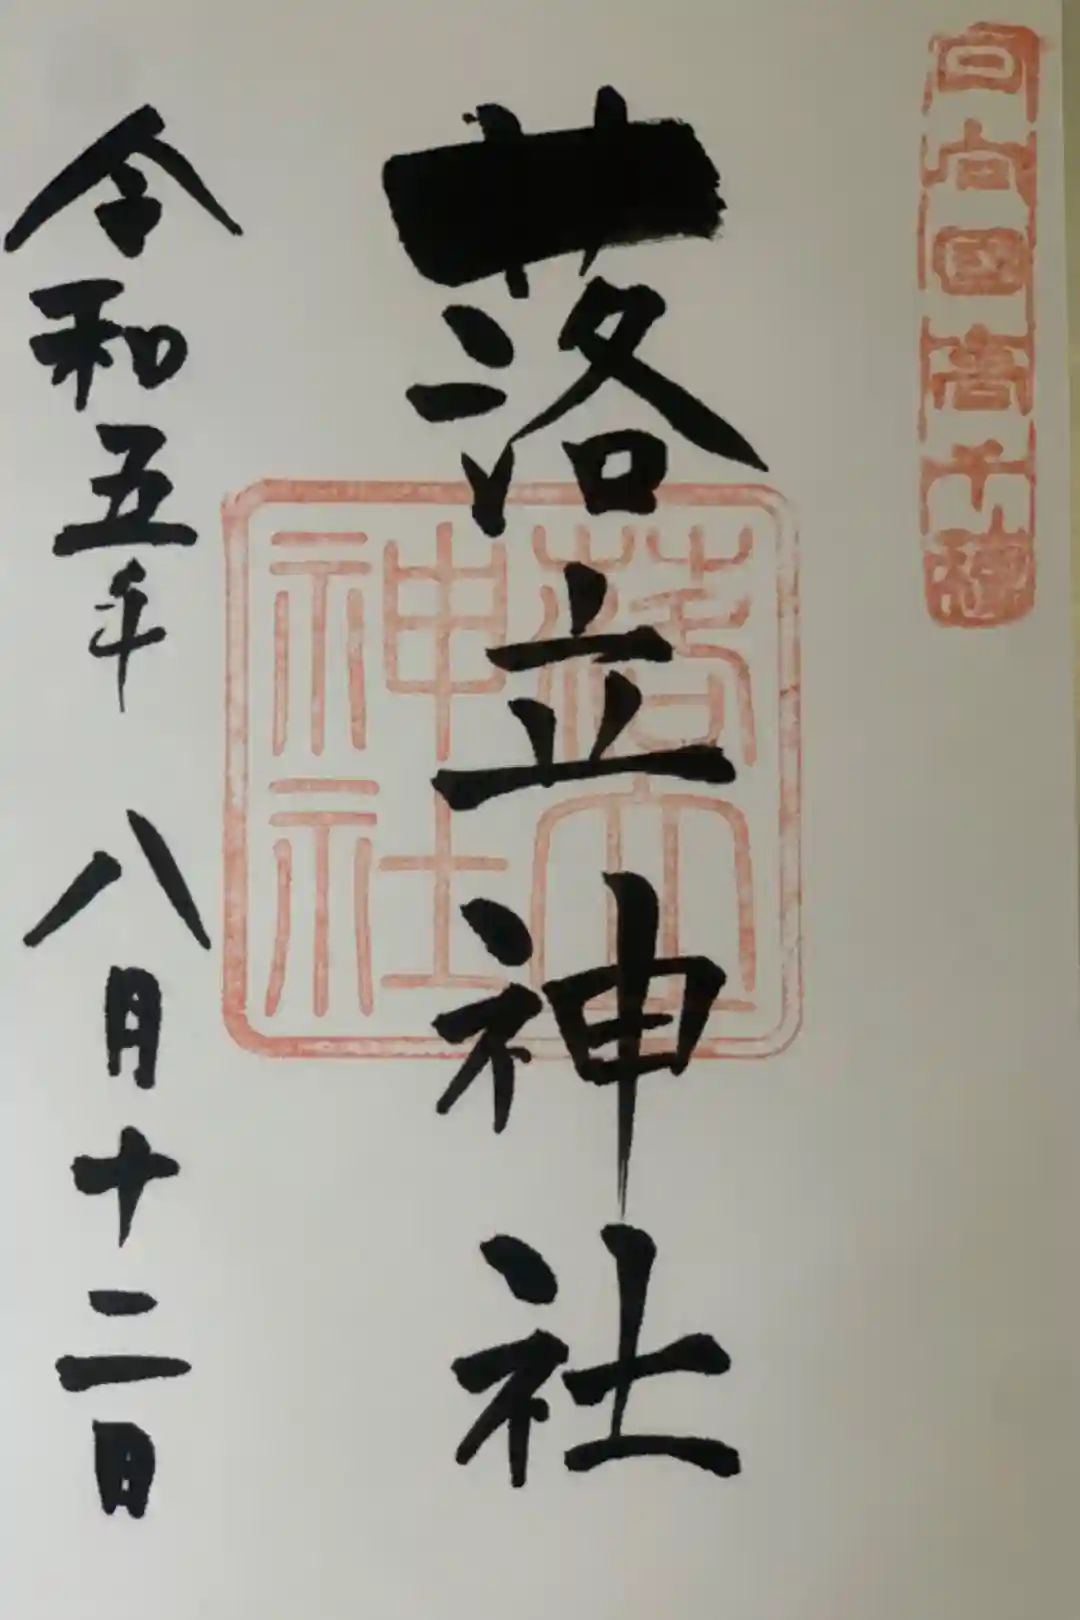 日向國高千穂
落立神社
落立
神社
令和五年 八月十二日